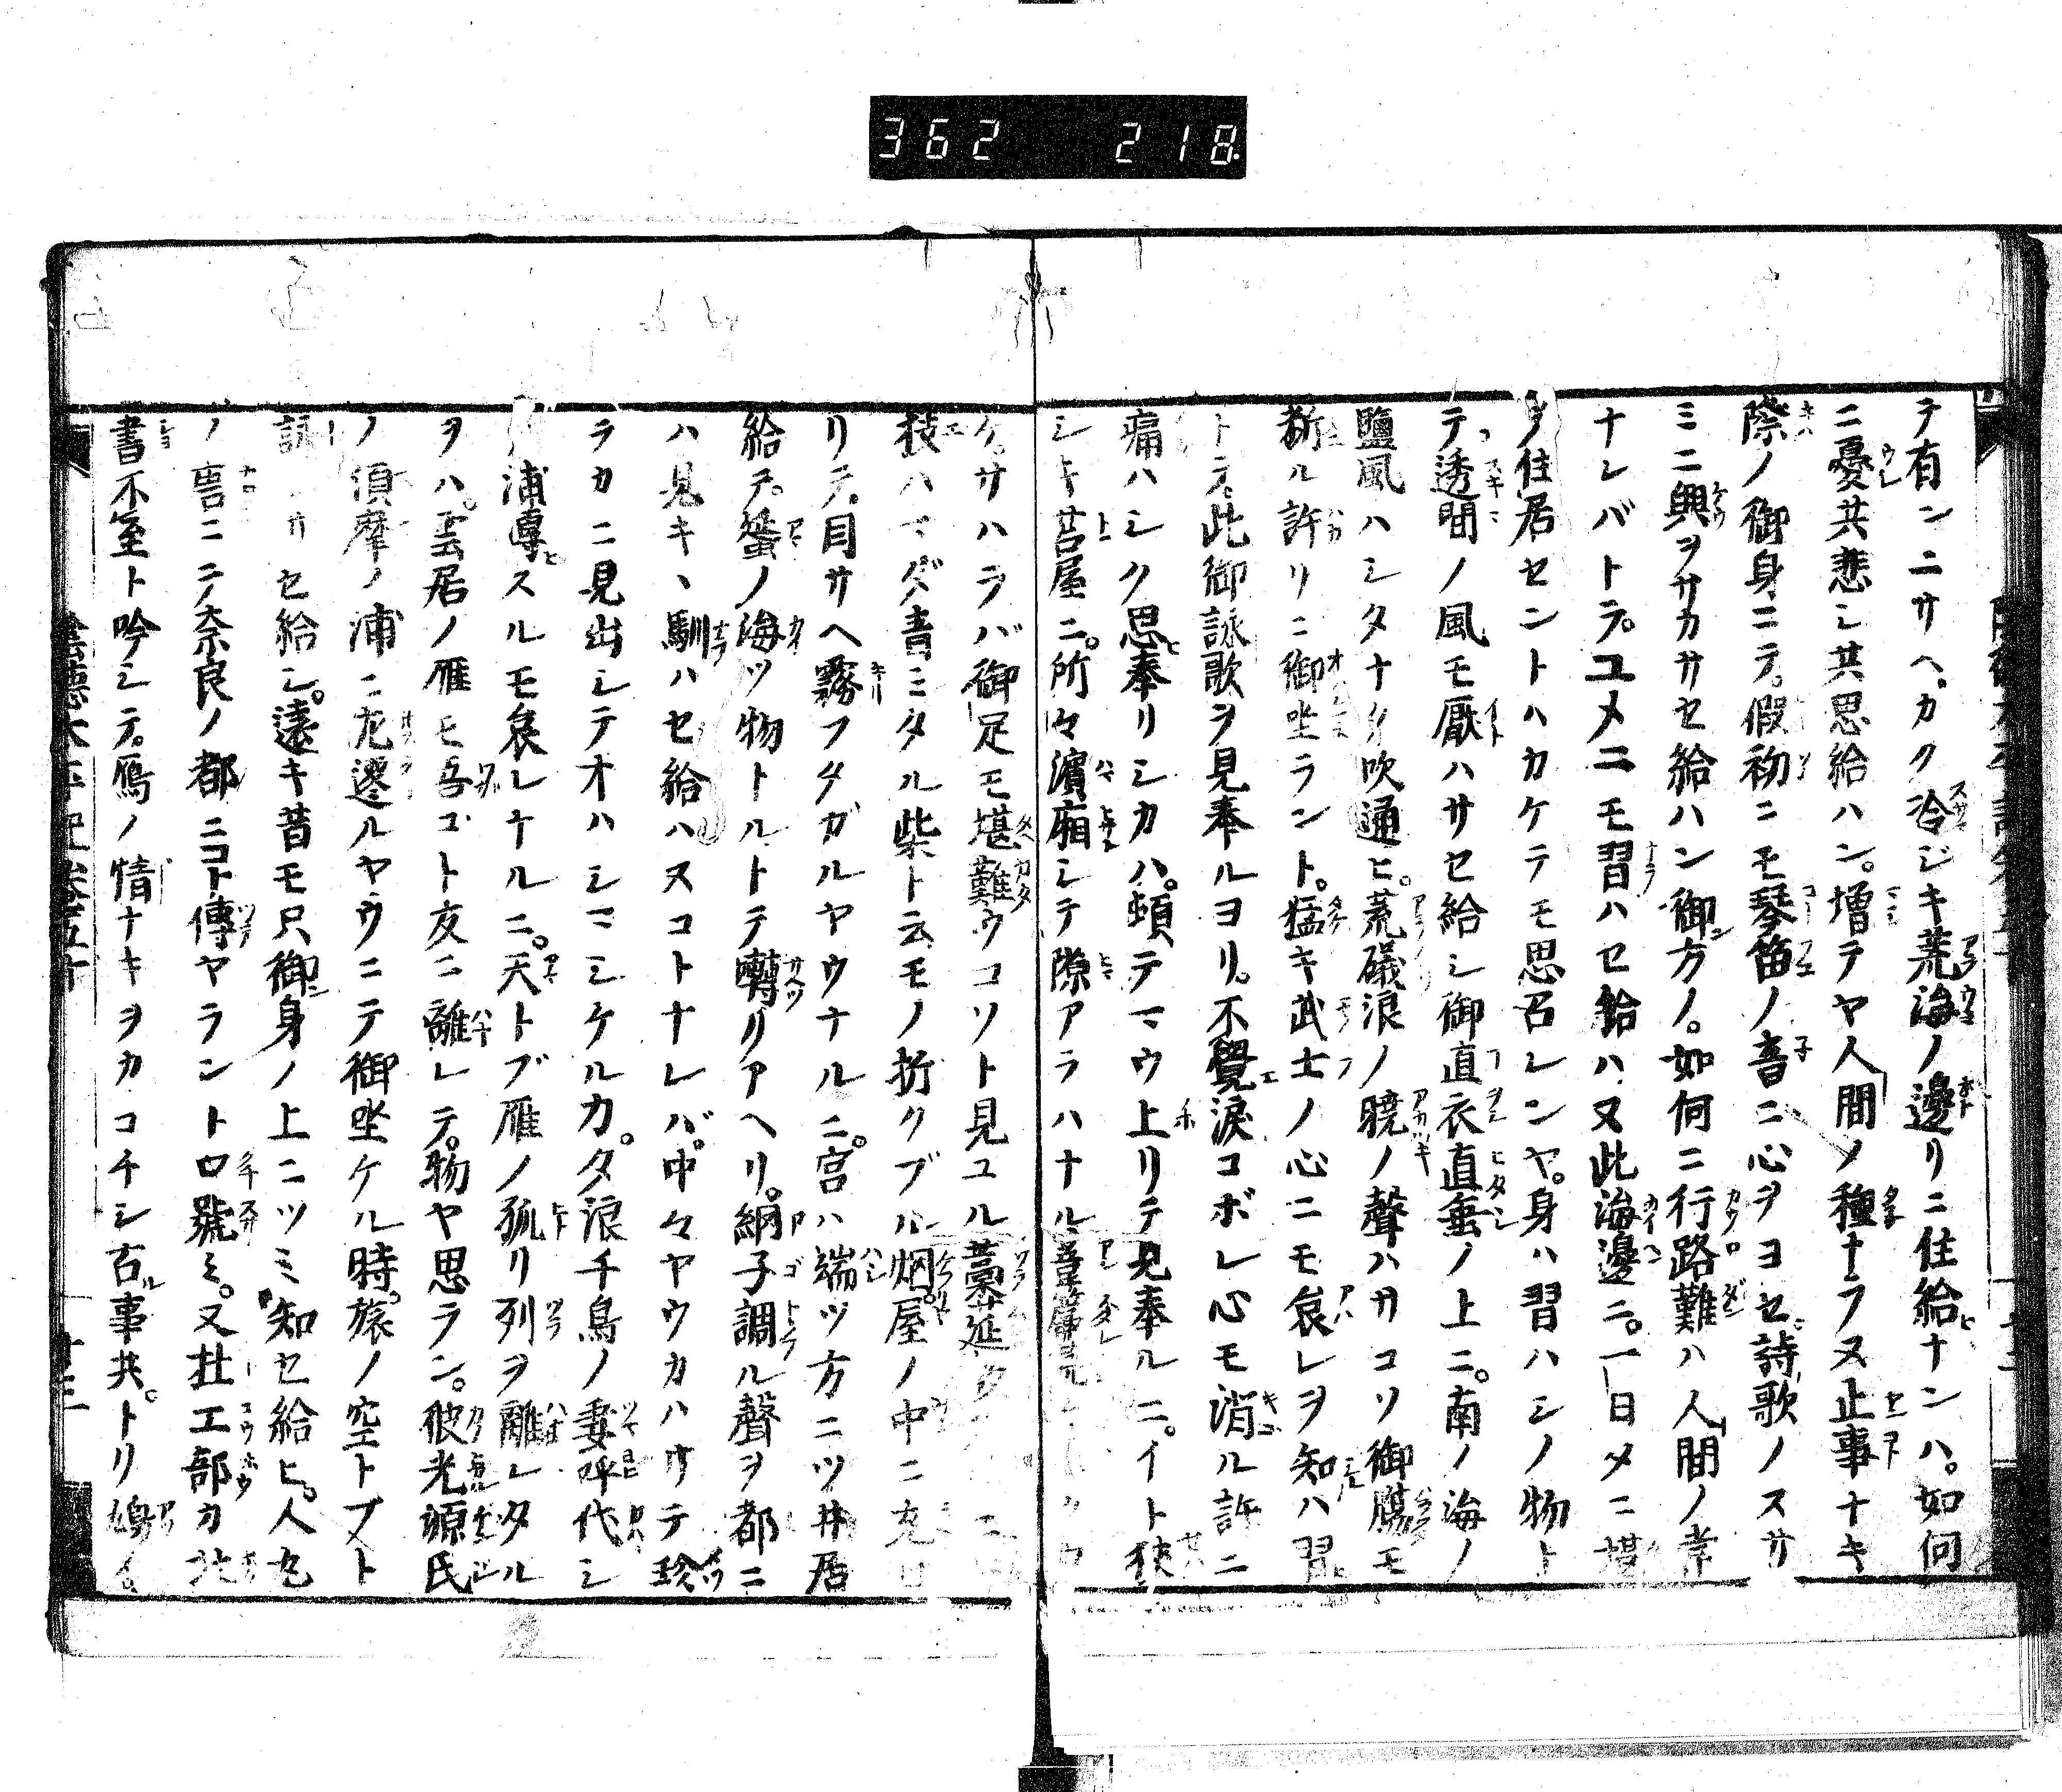 362 218
テ有ンニサヘ。カク冷ジキ荒海ノ邊リニ住給ヒナンハ。如何
ニ憂共悲シ共思給ハン。増テヤ人間ノ種ナラヌ止事ナキ
際ノ御身ニテ。假初ニモ琴笛ノ音ニ心ヲヨセ。詩歌ノスサ
ミニ興ヲサカサセ給ハン御方ノ。如何ニ行路難ハ人間ノ業
ナレバトテ。ユメニモ習ハセ給ハヌ此海邊ニ。一日タニ堪
住居セントハカケテモ思召レンヤ。身ハ習ハシノ物ト
テ透間ノ風モ厭ハサセ給シ御直衣直垂ノ上ニ。南ノ海ノ
鹽風ハシタナク吹通ヒ。荒礒浪ノ曉ノ聲ハサコソ御膓モ
斷ル許リニ御坐ラント。猛キ武士ノ心ニモ哀レヲ知ハ習
トテ。此御詠歌ヲ見奉ルヨリ。不覺涙コボレ心モ消ル許ニ
痛ハシク思奉リシカハ。頓テマウ上リテ見奉ルニ。イト狹
シキ苫屋ニ。所々濱廂シテ隙アラハナル葦簾
ケ。サハラバ御足モ堪難ウコソト見ユル藁莚
枝ハマダ青ミタル柴ト云モノ折クブル烟。屋ノ中ニ充
リテ。目サヘ霧フタガルヤウナルニ。宮ハ端ツ方ニツ井居
給テ。蜑ノ海ツ物トルトテ囀リアヘリ。網子調ル聲ヲ都ニ
ハ見キヽ馴ハセ給ハヌコトナレバ。中々ヤウカハリテ珍
ラカニ見出シテオハシマシケルカ。夕浪千鳥ノ妻呼代シ
浦傳スルモ哀レナルニ。天トブ雁ノ孤リ列ヲ離レタル
ヲハ。雲居ノ雁モ吾ゴト友ニ離レテ。物ヤ思ラン。彼光源氏
ノ須摩ノ浦ニ左遷ルヤウニテ御坐ケル時。旅ノ空トブト
詠 サセ給シ。遠キ昔モ只御身ノ上ニツミ知セ給ヒ。人丸
ノ ニテ奈良ノ都ニコト傳ヤラント口號ミ。又杜工部カ北
書不至ト吟シテ。鴈ノ情ナキヲカコチシ古事共。トリ